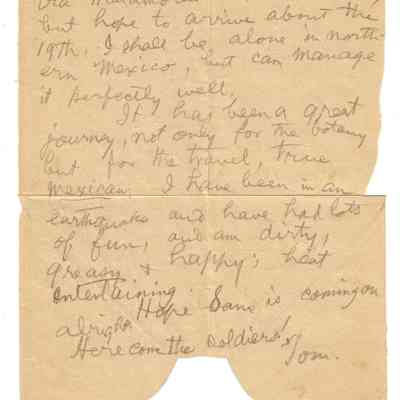 via Matamoros
but hope to arrive about the
19th. I shall be alone in north-
ern Mexico, but can manage
it perfectly well.
It has been a great
journey, not only for the botany
but for the travel, true
Mexican. I have been in an
earthquake and have had lots
of fun, and am dirty,
greasy & happy; heat
entertaining.
Hope Sam is coming on
alright.
Here come the soldiers!
Tom.